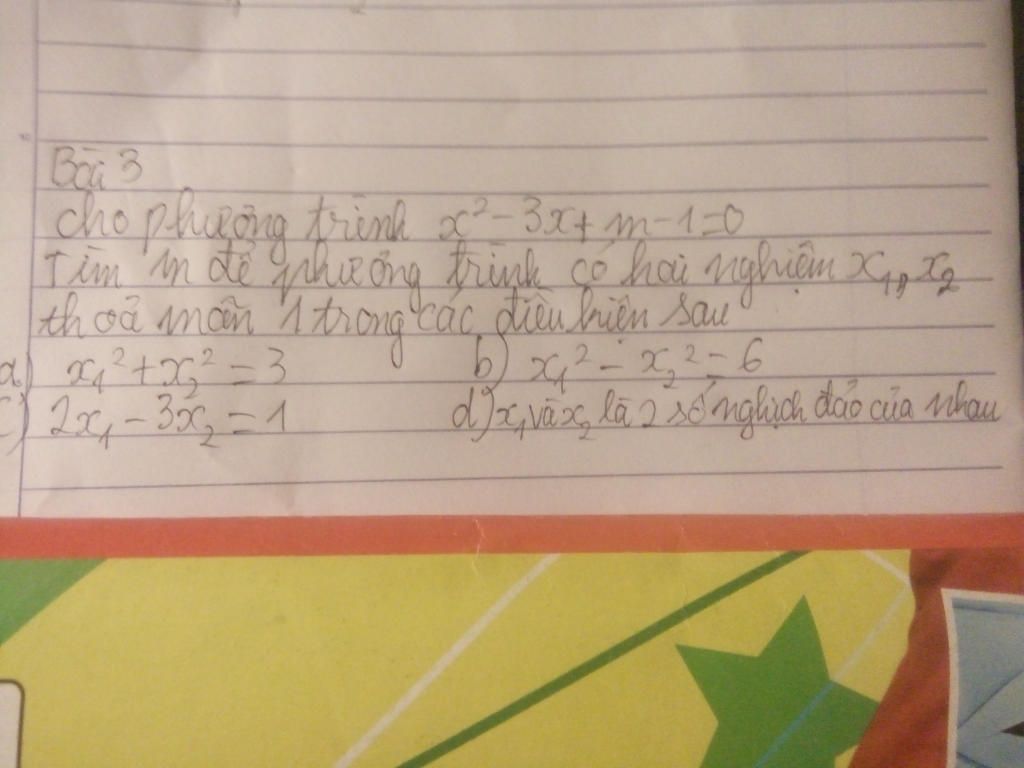 Bài 3
cho phương trình x² - 3x + m - 1 = 0
Tìm m để phương trình có hai nghiệm x₁, x₂
thoả mãn 1 trong các điều kiện sau
a) x₁² + x₂² = 3 b) x₁² - x₂² = 6
c) 2x₁ - 3x₂ = 1 d) x₁ và x₂ là 2 số nghịch đảo của nhau